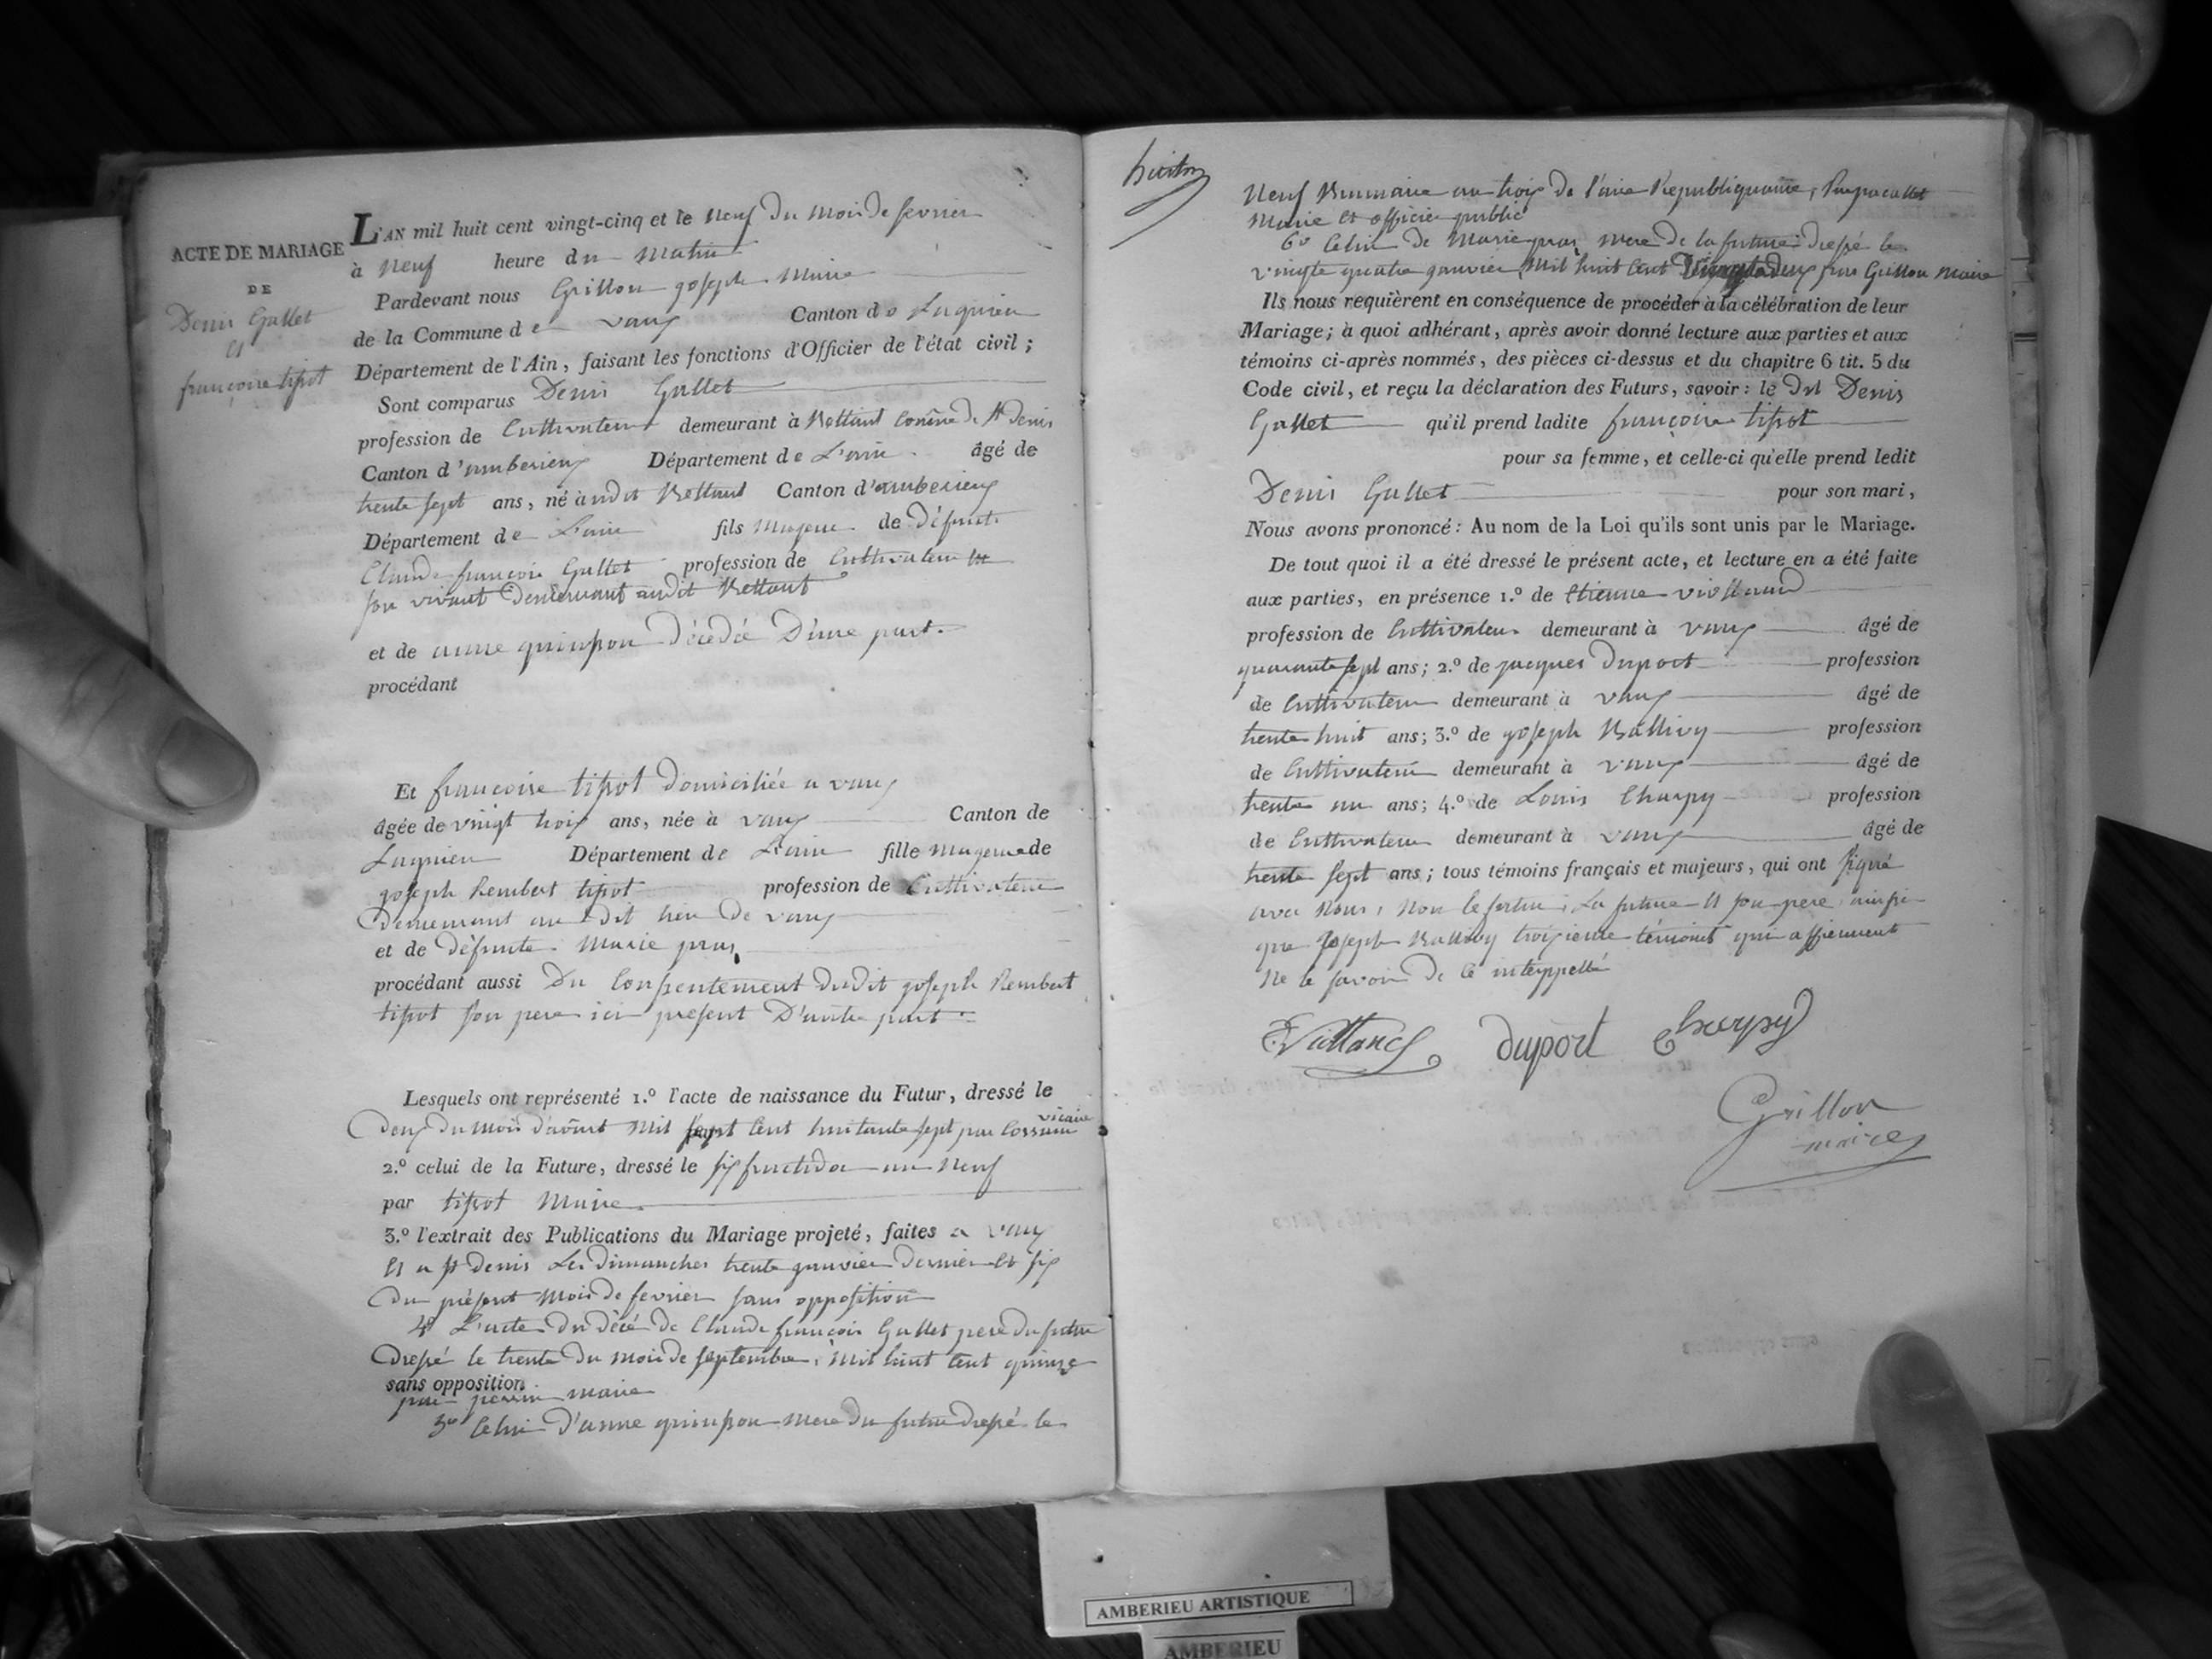 ACTE DE MARIAGE
DE
Denis Gallet
et
françoise tissot
L'AN mil huit cent vingt-cinq et le neuf du mois de fevrier
à neuf heure du matin
Pardevant nous Grillon joseph Maire
de la Commune de vaux Canton de Lagnieu
Département de l'Ain, faisant les fonctions d'Officier de l'état civil ;
Sont comparus Denis Gallet
profession de Cultivateur demeurant à Bettant Comune de St Denis
Canton d'amberieux Département de L'ain âgé de
trente sept ans, né audit Bettant Canton d'amberieux
Département de L'ain fils Majeur de Défunt
Claude françois Gallet profession de Cultivateur
son vivant Demeurant audit Bettant
et de anne quinson Décédée D'une part
procédant
Et françoise tissot domiciliée a vaux
âgée de vingt trois ans, née à vaux Canton de
Lagnieu Département de L'ain fille Majeure de
joseph Rembert tissot profession de Cultivateur
Demeurant au dit lieu de vaux
et de défunte Marie pras
procédant aussi Du Consentement dudit joseph Rembert
tissot son pere ici present D'autre part
Lesquels ont représenté 1.º l'acte de naissance du Futur, dressé le
Deux du mois d'août Mil sept Cent huitante sept par vicaire
2.º celui de la Future, dressé le six fructidor an neuf
par tissot Maire
3.º l'extrait des Publications du Mariage projeté, faites a vaux
et a st denis Les dimanches trente janvier dernier et six
du présent mois de fevrier sans opposition
4º L'acte du décé de Claude françois Gallet pere du futur
Dressé le trente du mois de septembre, Mil huit Cent quinze
sans opposition
par perrin maire
5º Celui D'anne quinson mere du futur dressé le
Neuf Brumaire an trois de l'aire Republiquaine, par
Maire et officier public
6º Celui de Marie pras mere de la future dressé le
vingte quatre janvier Mil huit Cent vingt deux par Grillon Maire
Ils nous requièrent en conséquence de procéder à la célébration de leur
Mariage; à quoi adhérant, après avoir donné lecture aux parties et aux
témoins ci-après nommés, des pièces ci-dessus et du chapitre 6 tit. 5 du
Code civil, et reçu la déclaration des Futurs, savoir : le dit Denis
Gallet qu'il prend ladite françoise tissot
pour sa femme, et celle-ci qu'elle prend ledit
Denis Gallet pour son mari,
Nous avons prononcé : Au nom de la Loi qu'ils sont unis par le Mariage.
De tout quoi il a été dressé le présent acte, et lecture en a été faite
aux parties, en présence 1.º de Etienne
profession de Cultivateur demeurant à vaux âgé de
quarante sept ans; 2.º de jacques Duport profession
de Cultivateur demeurant à vaux âgé de
trente huit ans; 3.º de joseph Ballivy profession
de Cultivateur demeurant à vaux âgé de
trente un ans; 4.º de Louis Charpy profession
de Cultivateur demeurant à vaux âgé de
trente sept ans; tous témoins français et majeurs, qui ont signé
avec Nous, Non le futur, La future et son pere ainsi
que Joseph Ballivy troisieme témoint qui affierment
Ne le savoir de ce interppellé
duport Charpy
Grillon
maire
AMBERIEU ARTISTIQUE
AMBERIEU